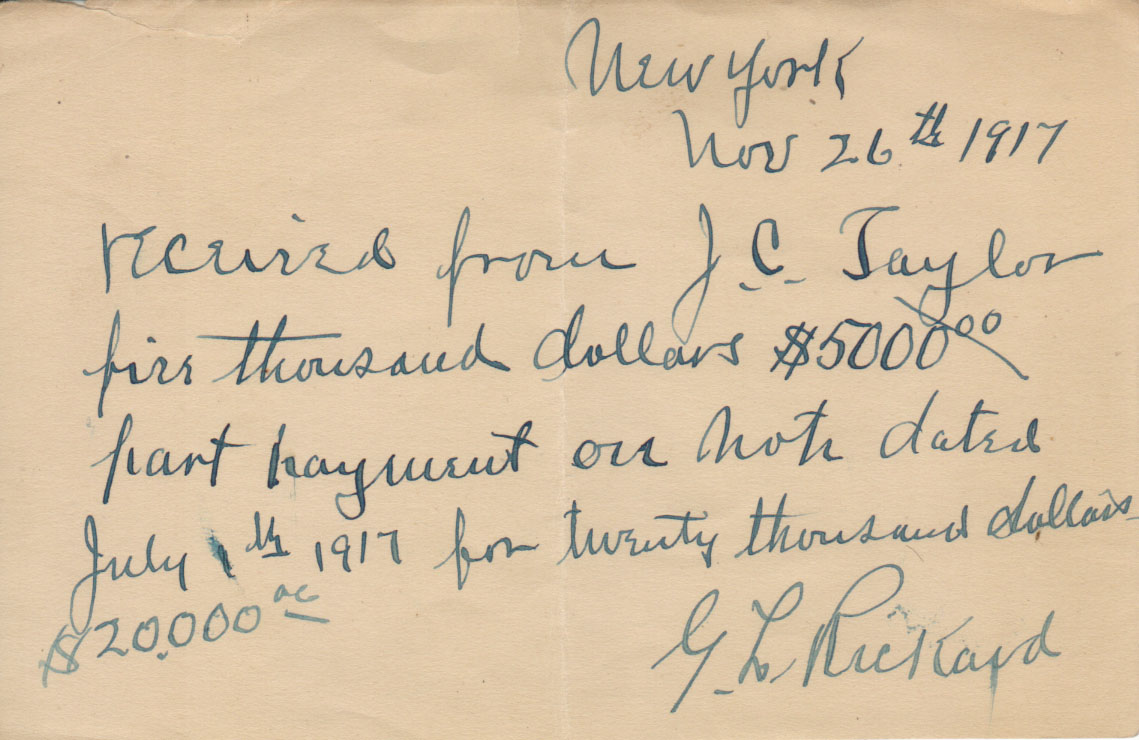 New York
Nov 26th 1917
received from J.C. Taylor
five thousand dollars $5000 00
part payment on note dated
July 1th 1917 for twenty thousand dollars
$20,000 00
G. L. Rickard